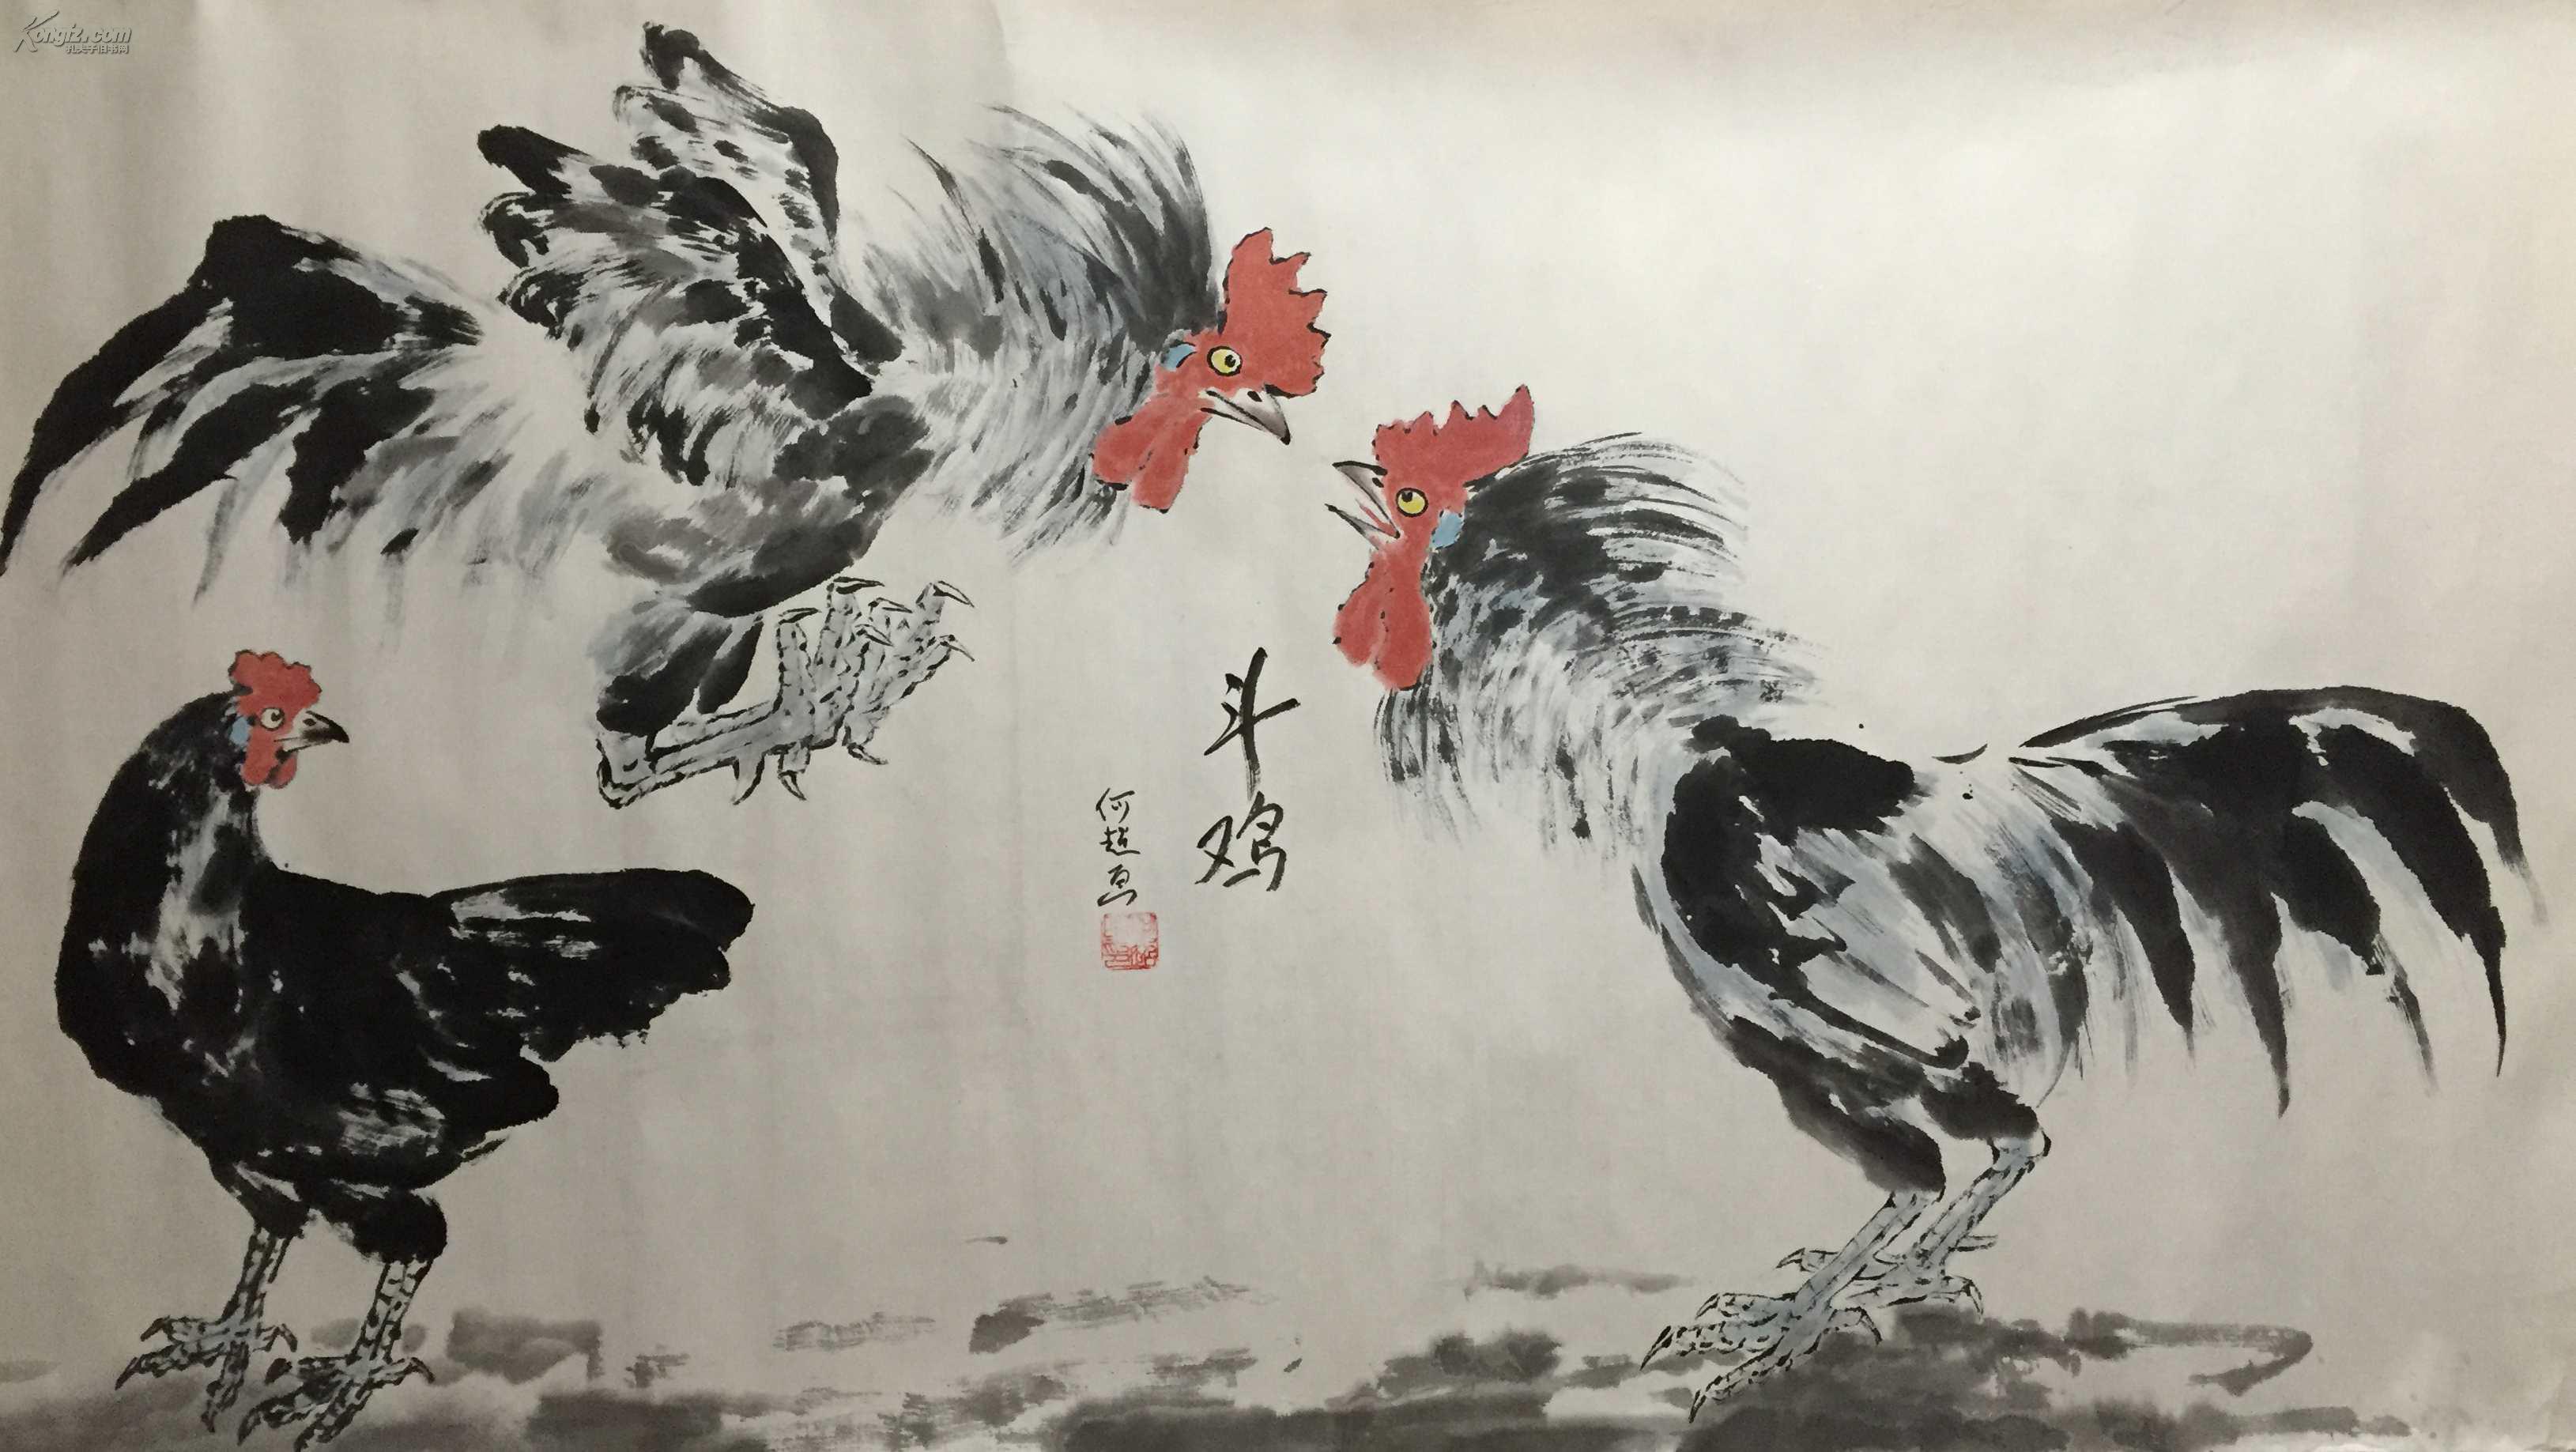 Kongfz.com
孔夫子旧书网
斗鸡
何超画